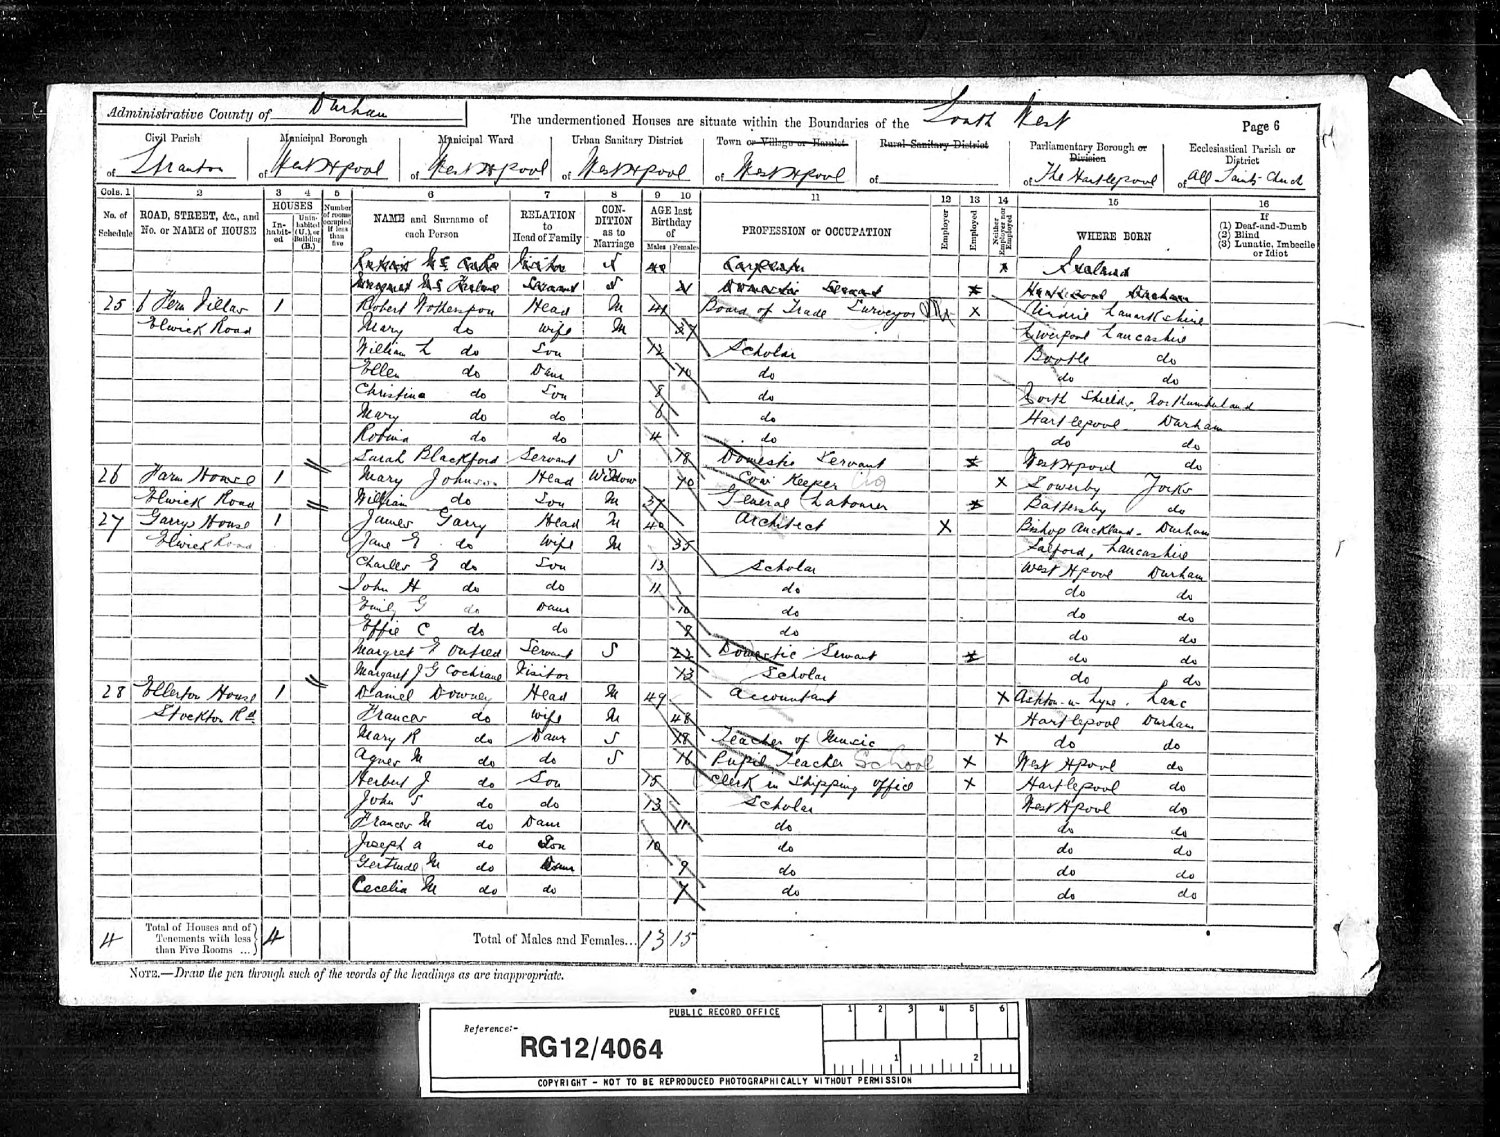 Administrative County of Durham
The undermentioned Houses are situate within the Boundaries of the South West
Page 6
Civil Parish Municipal Borough Municipal Ward Urban Sanitary District Town or Village or Hamlet Rural Sanitary District Parliamentary Borough or Division Ecclesiastical Parish or District
of Stranton of West Hpool of West Hpool of West Hpool of West Hpool of of The Hartlepool of All Saints Church
Cols. 1 2 3 4 5 6 7 8 9 10 11 12 13 14 15 16
No. of Schedule
ROAD, STREET, &c., and No. or NAME of HOUSE
HOUSES
In-habit-ed
Unin-habited (U.), or Building (B.)
Number of rooms occupied if less than five
NAME and Surname of each Person
RELATION to Head of Family
CON-DITION as to Marriage
AGE last Birthday of
Males Females
PROFESSION or OCCUPATION
Employer
Employed
Neither Employer nor Employed
WHERE BORN
If
(1) Deaf-and-Dumb
(2) Blind
(3) Lunatic, Imbecile or Idiot
Visitor S x Ireland
Servant S Domestic Servant x Durham
25 6 Fern Villas 1 Robert Wotherspon Head M 41 Board of Trade Surveyor x Airdrie Lanarkshire
Elwick Road Mary do Wife M 37 Liverpool Lancashire
William L do Son 12 Scholar Bootle do
Ellen do Daur 10 do do do
Christina do Son 8 do North Shields, Northumberland
Mary do do 6 do Hartlepool Durham
Robina do do 4 do do do
Sarah Blackford Servant S 18 Domestic Servant x West Hpool do
26 Farm House 1 Mary Johnson Head Widow 70 Cow Keeper x Sowerby Yorks
Elwick Road William do Son M 37 General Labourer x Battersby do
27 Garrys House 1 James Garry Head M 40 Architect X Bishop Auckland. Durham
Elwick Road Jane E do Wife M 35 Salford, Lancashire
Charles E do Son 13 Scholar West Hpool Durham
John H do do 11 do do do
Emily G do Daur 10 do do do
Effie C do do 8 do do do
Margret E Servant S 22 Domestic Servant x do do
Margaret J G Cochrane Visitor 13 Scholar do do
28 Ellerton House 1 Daniel Downey Head M 49 Accountant X Ashton-u-Lyne. Lanc
Stockton Rd Frances do Wife M 48 Hartlepool Durham
Mary R do Daur S 18 Teacher of Music X do do
Agnes M do do S 16 Pupil Teacher School X West Hpool do
Herbert J do Son 15 Clerk in Shipping office X Hartlepool do
John S do do 13 Scholar West Hpool do
Frances M do Daur 11 do do do
Joseph A do Son 10 do do do
Gertrude M do Daur 9 do do do
Cecelia M do do 7 do do do
4 Total of Houses and of Tenements with less than Five Rooms ... 4 Total of Males and Females... 13 15
NOTE.—Draw the pen through such of the words of the headings as are inappropriate.
PUBLIC RECORD OFFICE
1 2 3 4 5 6
Reference:-
RG12/4064
1 2
COPYRIGHT - NOT TO BE REPRODUCED PHOTOGRAPHICALLY WITHOUT PERMISSION